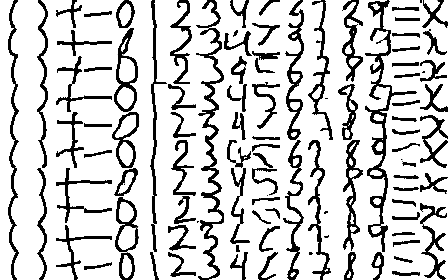 ( ) + - 0 1 2 3 4 5 6 7 8 9 = x
( ) + - 0 1 2 3 4 5 6 7 8 9 = x
( ) + - 0 1 2 3 4 5 6 7 8 9 = x
( ) + - 0 1 2 3 4 5 6 7 8 9 = x
( ) + - 0 1 2 3 4 5 6 7 8 9 = x
( ) + - 0 1 2 3 4 5 6 7 8 9 = x
( ) + - 0 1 2 3 4 5 6 7 8 9 = x
( ) + - 0 1 2 3 4 5 5 7 8 9 = x
( ) + - 0 1 2 3 4 5 6 7 8 9 = x
( ) + - 0 1 2 3 4 5 6 7 8 9 = x